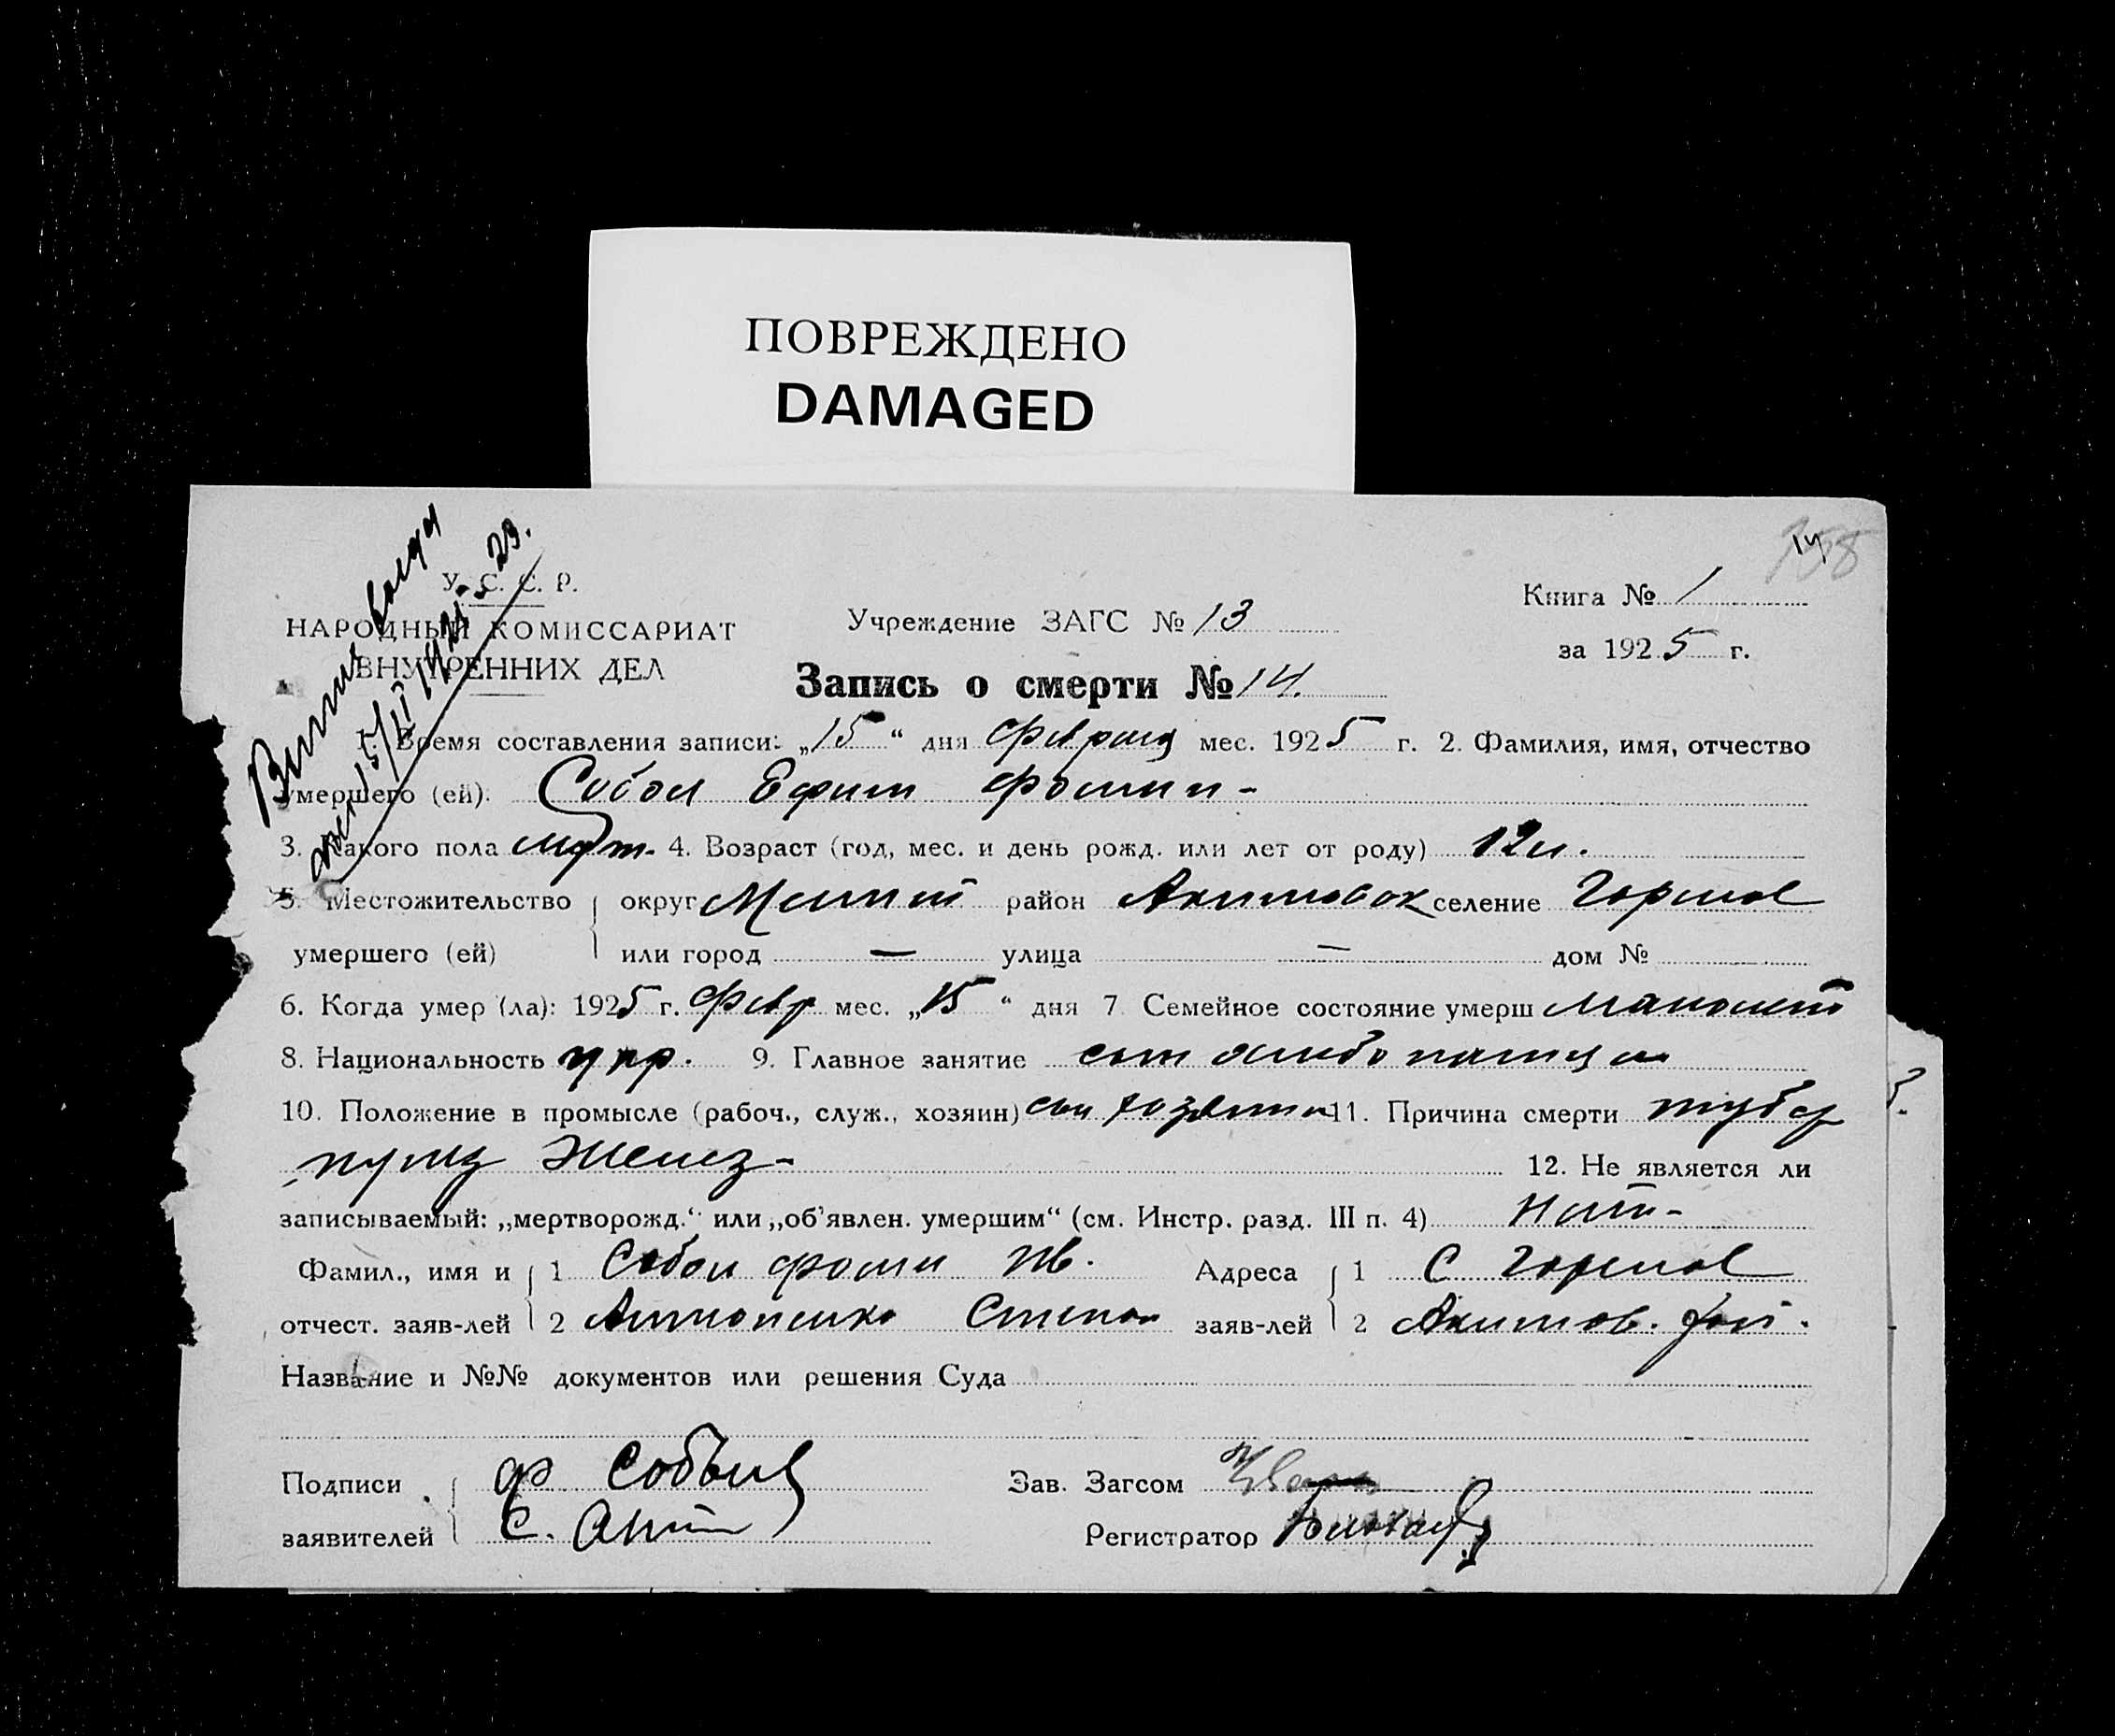 ПОВРЕЖДЕНО
DAMAGED
У. С. С. Р.
НАРОДНЫЙ КОМИССАРИАТ
ВНУТРЕННИХ ДЕЛ
Учреждение ЗАГС № 13
Книга № 1
за 1925 г.
Запись о смерти № 14.
1. Время составления записи: „15“ дня февраля мес. 1925 г. 2. Фамилия, имя, отчество
умершего (ей). Собол Ефим Фомич-
3. Какого пола муж. 4. Возраст (год, мес. и день рожд. или лет от роду) 12 л.
5. Местожительство округ Мелит район Акимовок селение Горелов
умершего (ей) или город — улица — дом №
6. Когда умер (ла): 1925 г. февр мес. „15“ дня 7 Семейное состояние умерш малолет
8. Национальность укр. 9. Главное занятие сын хлебопашца
10. Положение в промысле (рабоч., служ., хозяин) сын хозяина 11. Причина смерти тубер
желез- 12. Не является ли
записываемый: „мертворожд.“ или „об'явлен. умершим“ (см. Инстр. разд. III п. 4) Нет-
Фамил., имя и 1 Собол Фома Ив. Адреса 1 С Горелов
отчест. заяв-лей 2 Антоненко Степан заяв-лей 2 Акимов.
Название и №№ документов или решения Суда
Подписи ф Собыль Зав. Загсом
заявителей С. Ант Регистратор